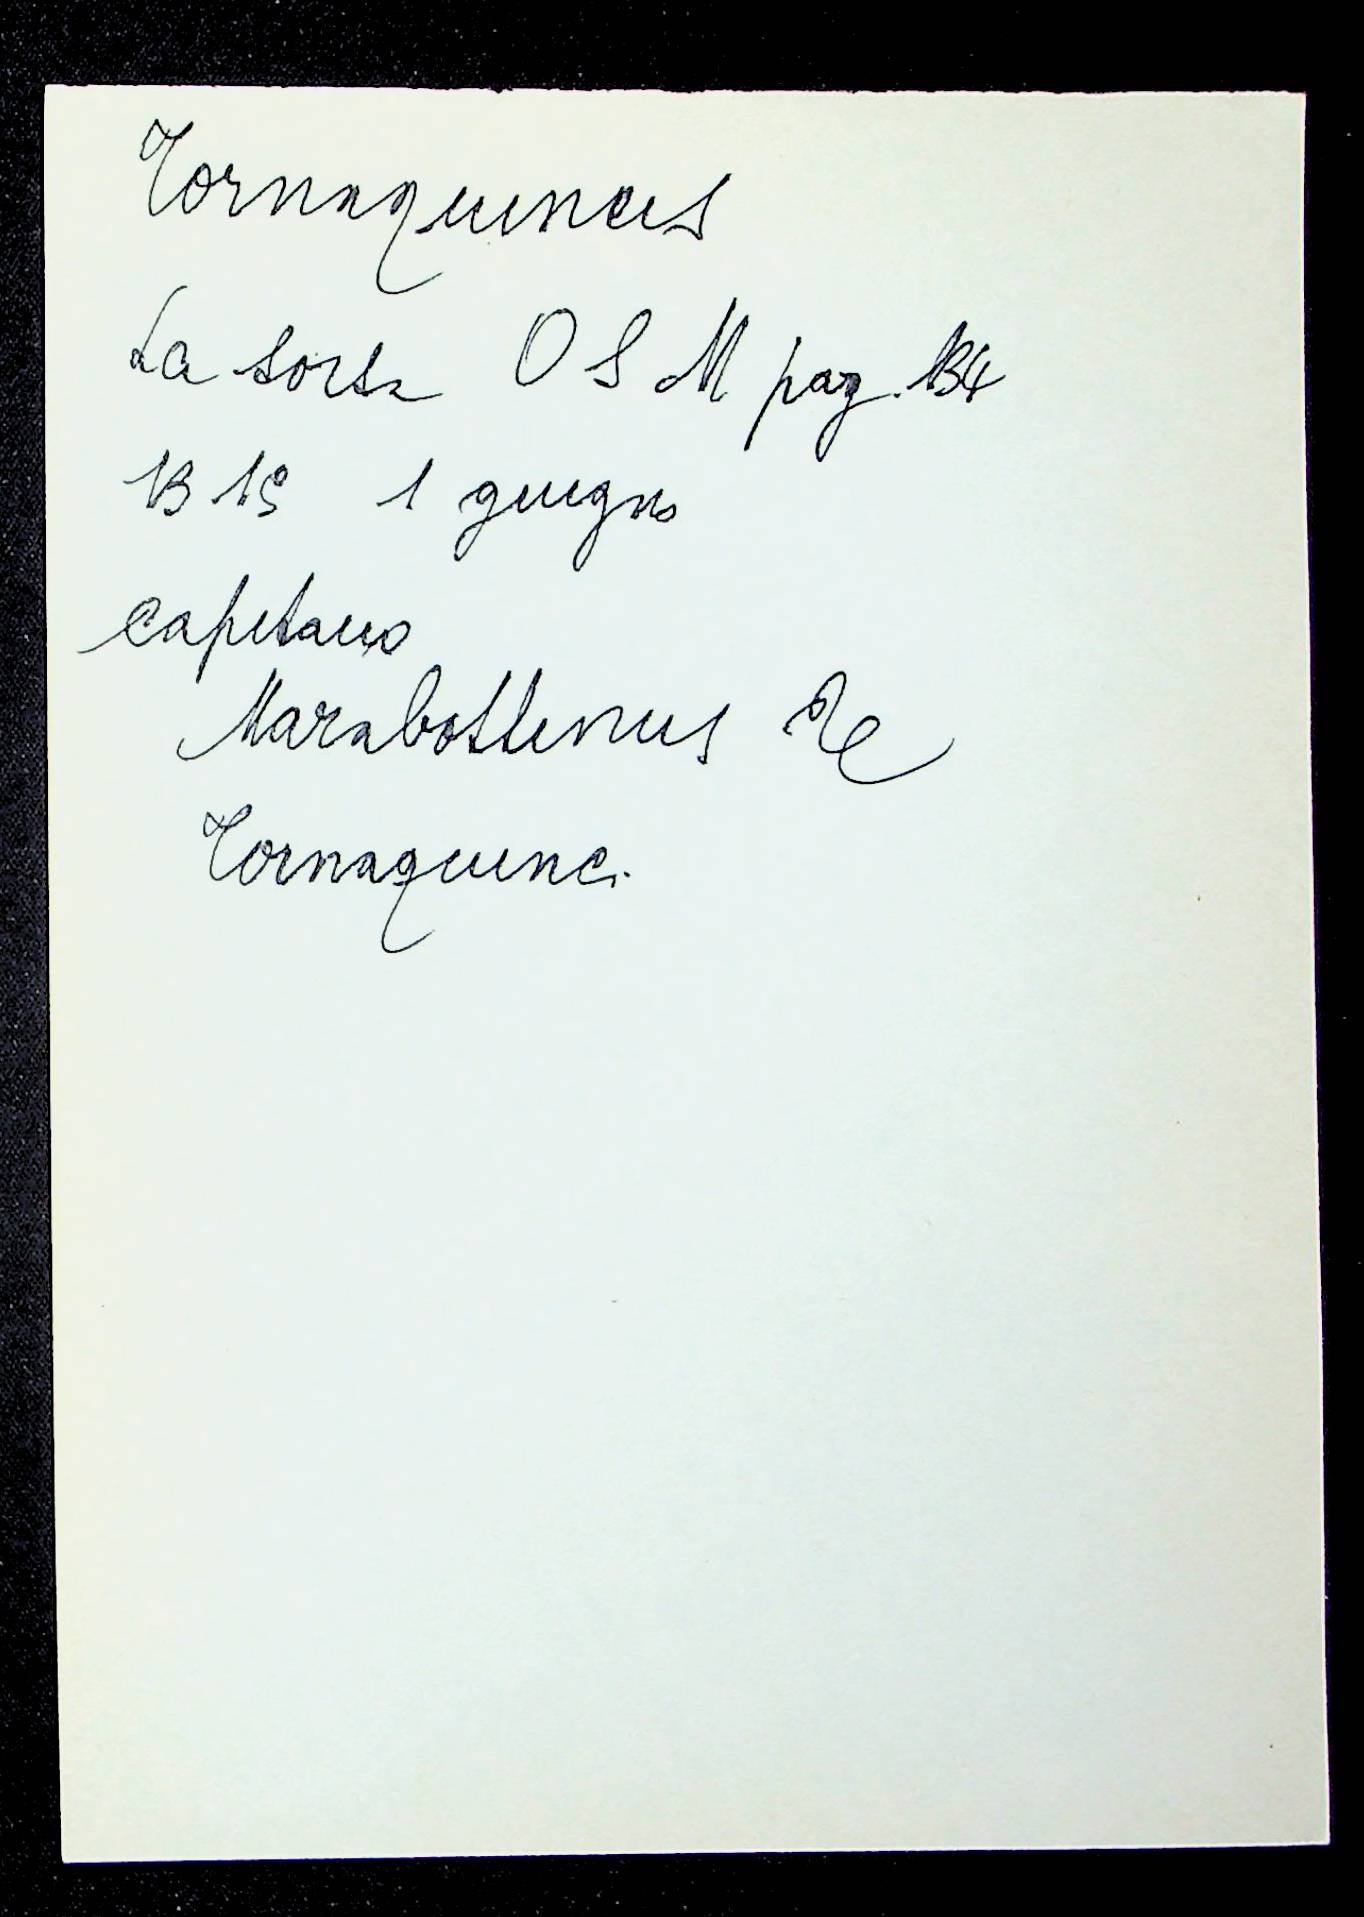 Tornaquincis
La sorsa O S M pag. 134
1319 1 giugno
capitano
Marabottinus De
Tornaquinci